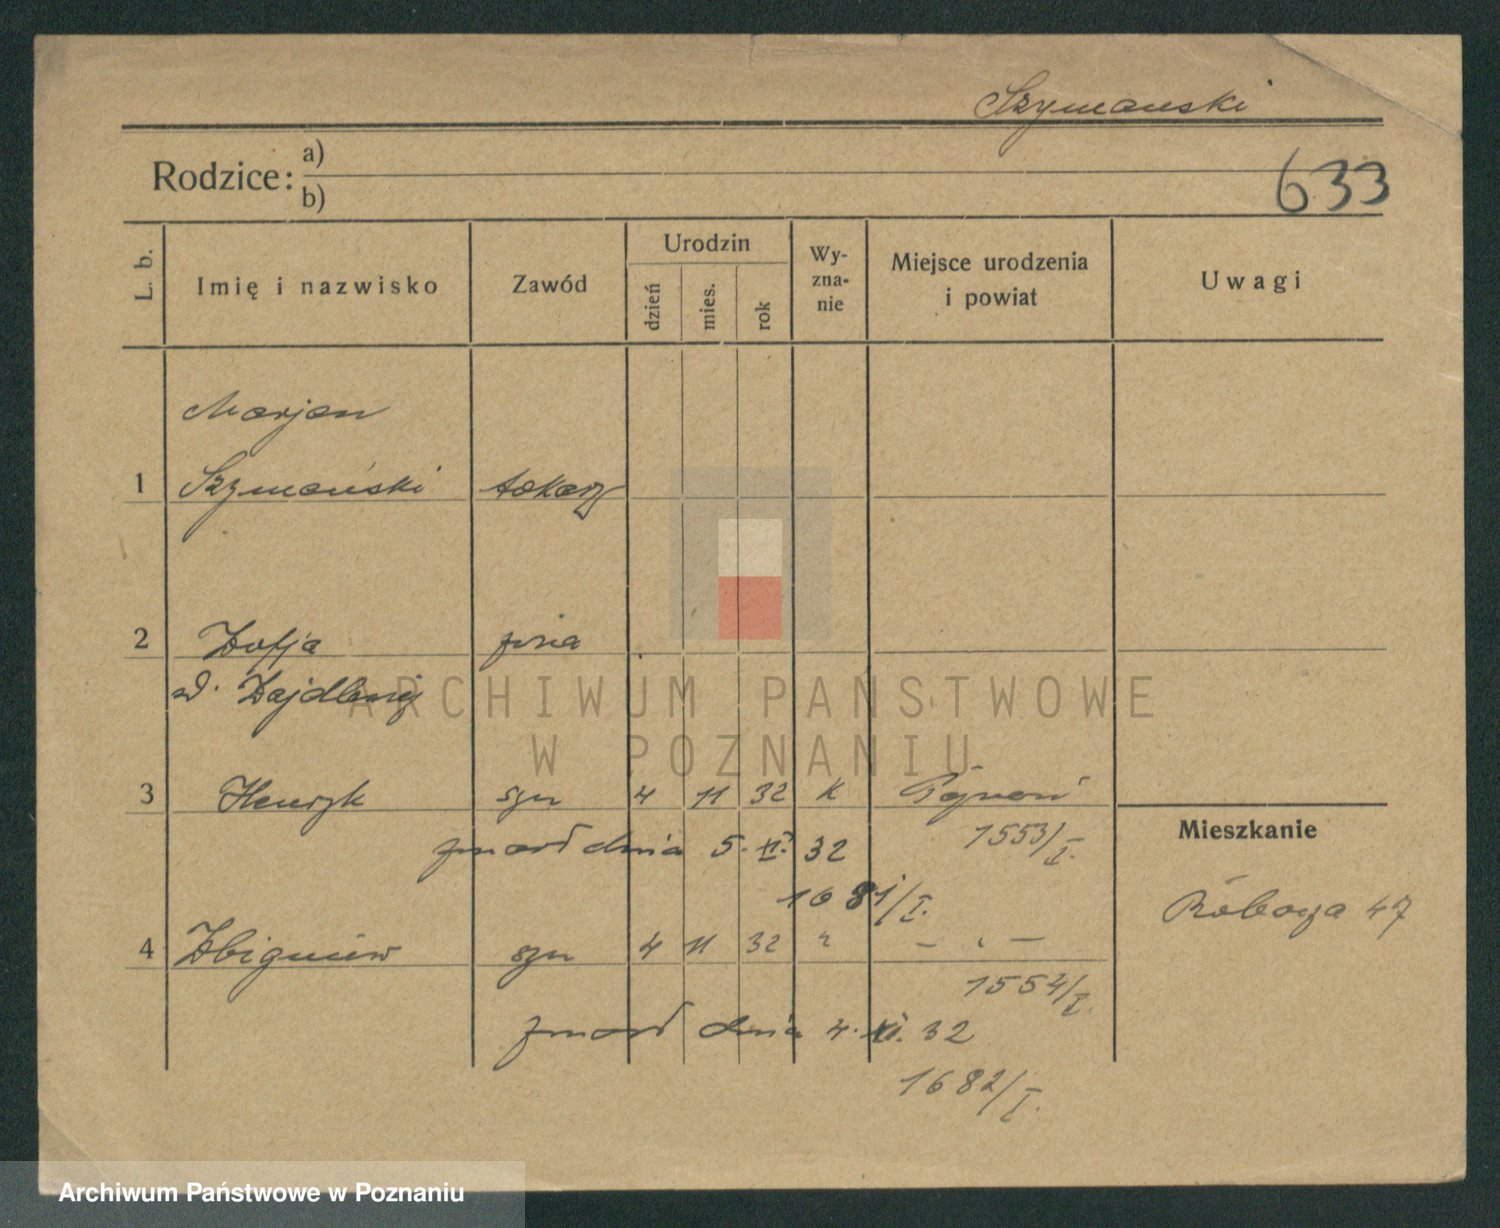 Szymanski
Rodzice: a)
b)
633
L. b.
Imię i nazwisko
Zawód
Urodzin
dzień
mies.
rok
Wy-
zna-
nie
Miejsce urodzenia
i powiat
Uwagi
Marjan
1 Szymański tokarz
2 Zofja żona
ARCHIWUM PAŃSTWOWE
W POZNANIU
3 Henryk syn 4 11 32 K Poznań
1553/I.
zmarł dnia 5. XI. 32
1681/I.
Mieszkanie
Robocza 47
4 Zbigniew syn 4 11 32 " — " —
1554/I.
zmarł dnia 4. XI. 32
1682/I.
Archiwum Państwowe w Poznaniu